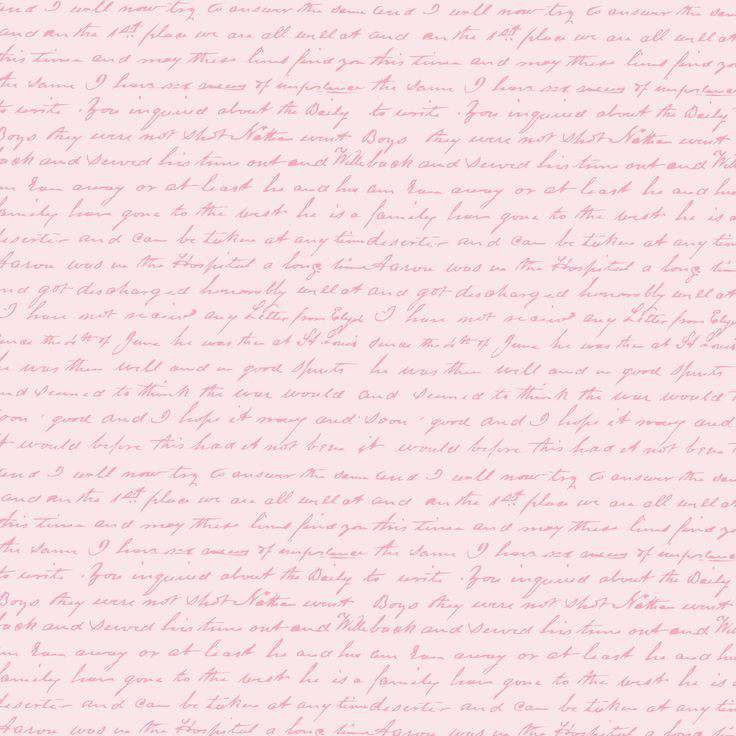 and I will now try to answer the same and I will now try to answer the same
and on the 1st place we are all well at and on the 1st place we are all well at
this time and may these lines find you this time and may these lines find you
the same I have news of importance the same I have news of importance
to write . You inquired about the Daily to write . You inquired about the Daily
Boys they were not shot Nathan went Boys they were not shot Nathan went
back and served his time out and Will back and served his time out and Will
away or at least he and his away or at least he and his
family have gone to the west he is a family have gone to the west he is a
deserter and can be taken at any time deserter and can be taken at any time
Aaron was in the Hospital a long time Aaron was in the Hospital a long time
and got discharged honorably well at and got discharged honorably well at
I have not received any Letter from I have not received any Letter from
since the 4th of June he was then at St Louis since the 4th of June he was then at St Louis
he was then well and in good Spirits he was then well and in good Spirits
and seemed to think the war would and seemed to think the war would
soon good and I hope it may and soon good and I hope it may and
it would before this had it not been it would before this had it not been
and I will now try to answer the same and I will now try to answer the same
and on the 1st place we are all well at and on the 1st place we are all well at
this time and may these lines find you this time and may these lines find you
the same I have news of importance the same I have news of importance
to write . You inquired about the Daily to write . You inquired about the Daily
Boys they were not shot Nathan went Boys they were not shot Nathan went
back and served his time out and Will back and served his time out and Will
away or at least he and his away or at least he and his
family have gone to the west he is a family have gone to the west he is a
deserter and can be taken at any time deserter and can be taken at any time
Aaron was in the Hospital a long time Aaron was in the Hospital a long time